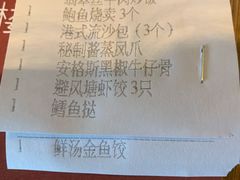 鲍鱼烧卖3个
港式流沙包（3个）
秘制酱蒸凤爪
安格斯黑椒牛仔骨
避风塘虾饺3只
鳕鱼挞
鲜汤金鱼饺